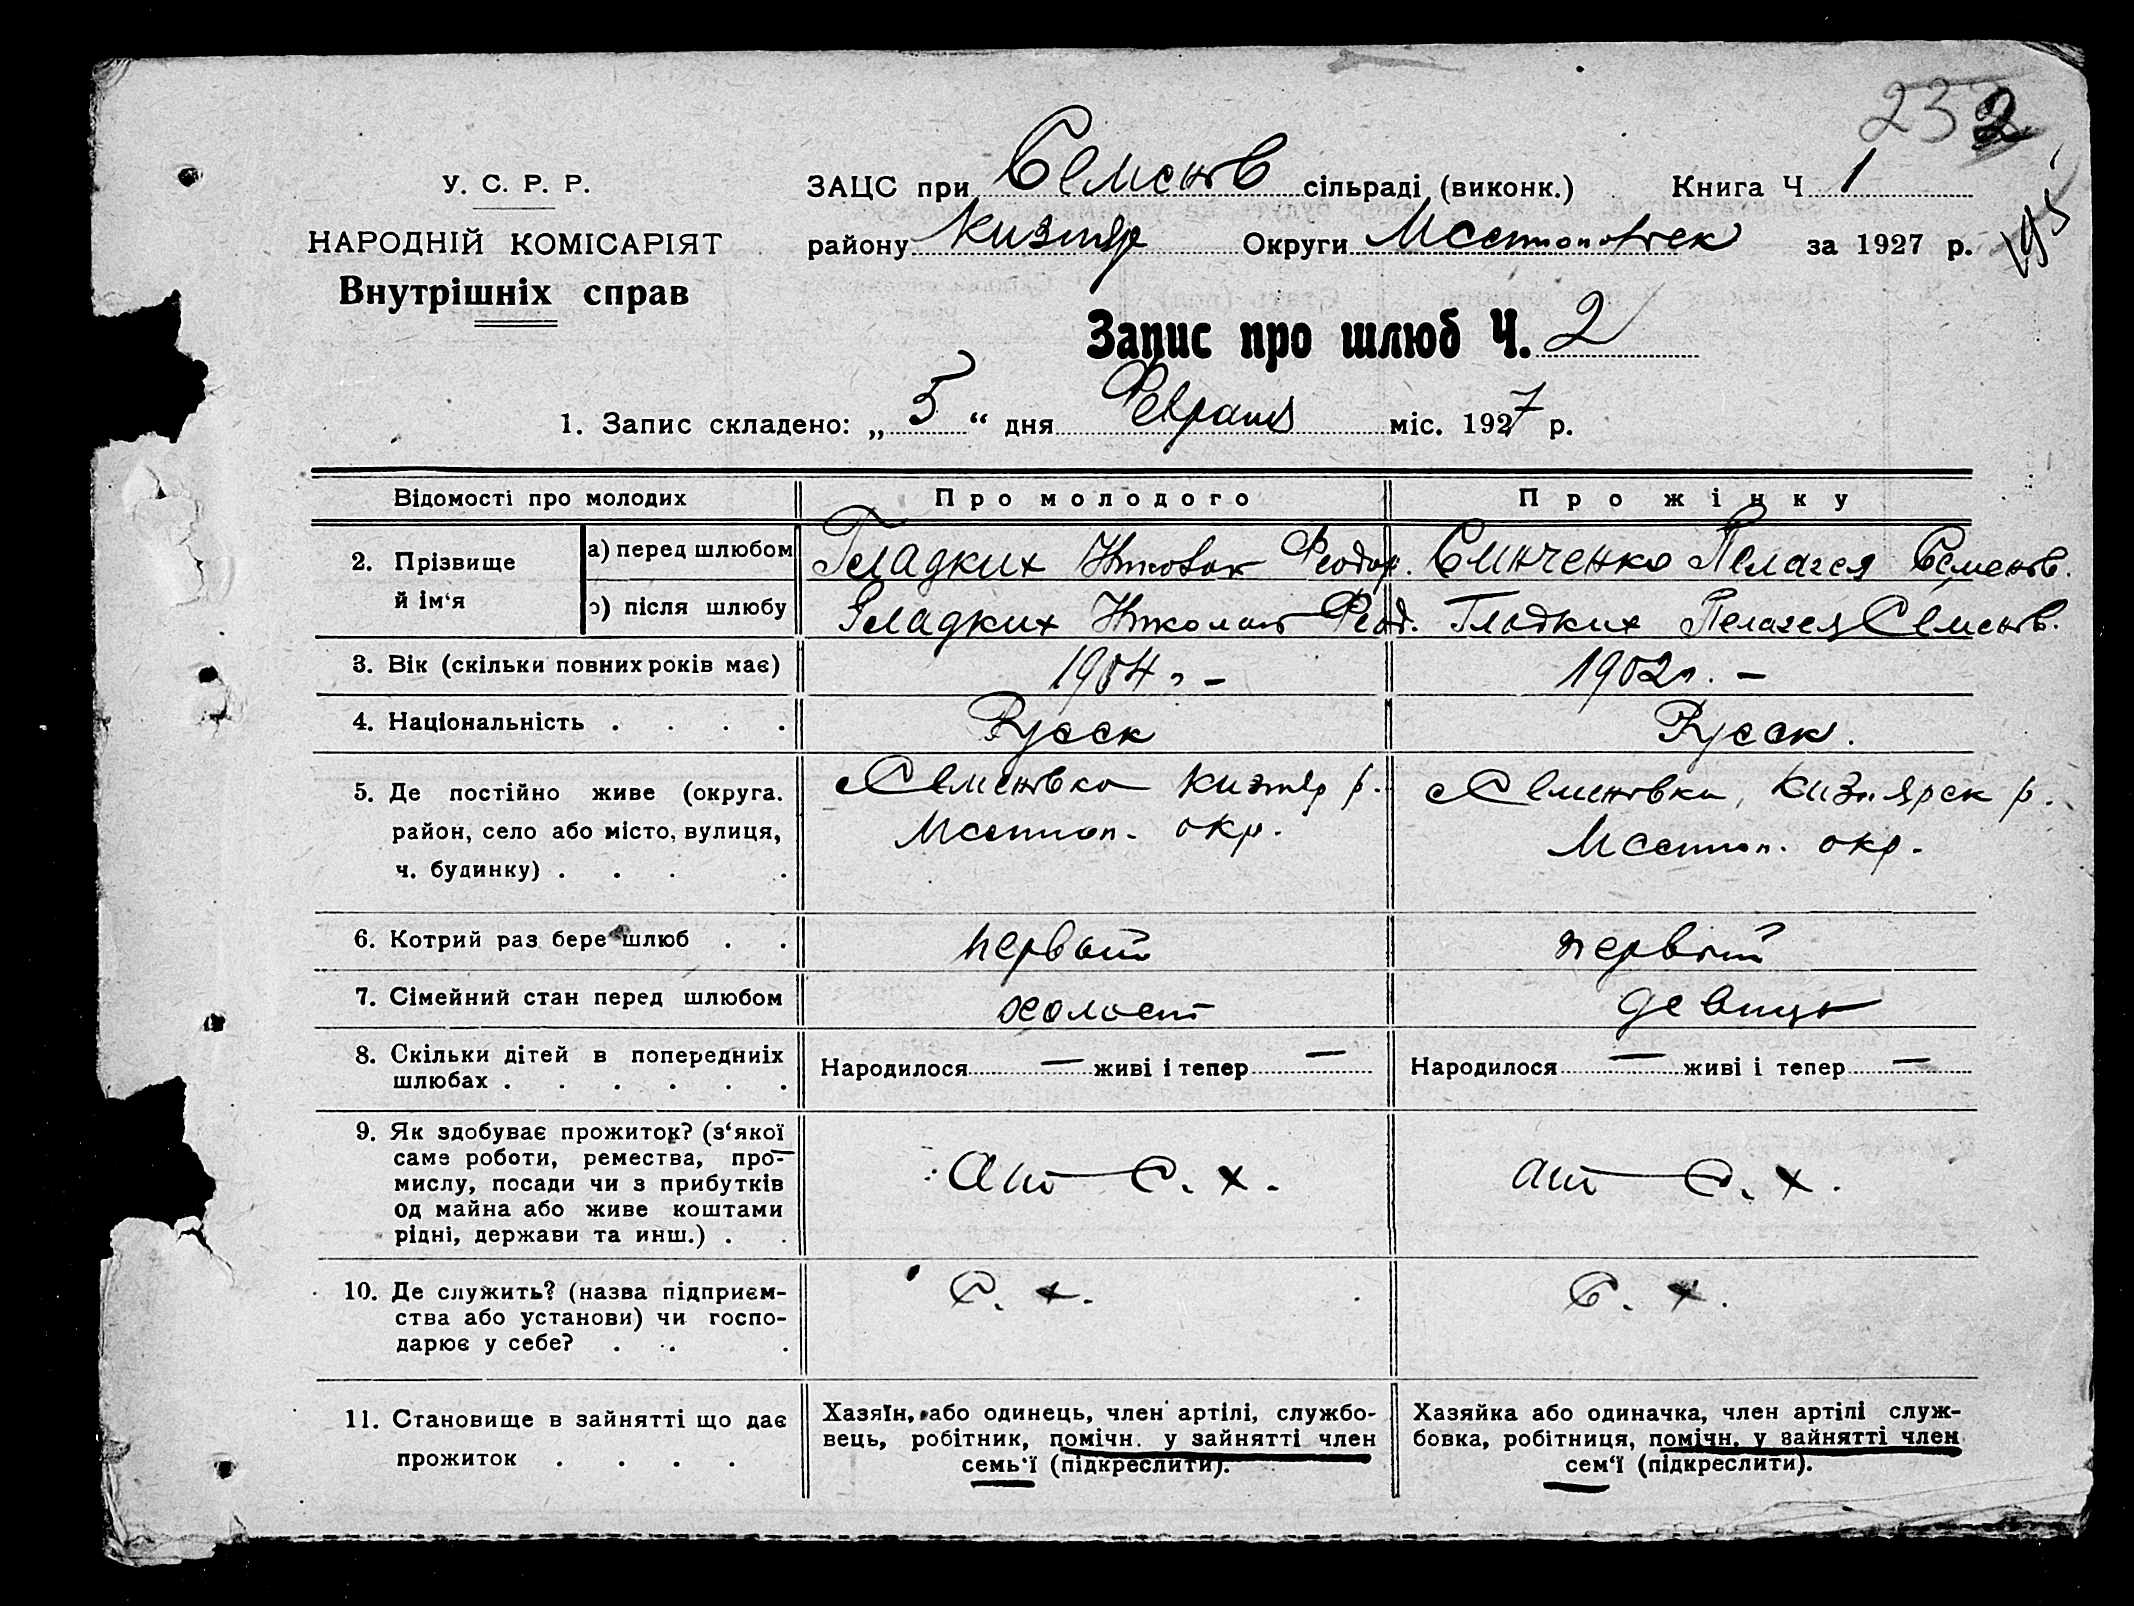 232
195
У. С. Р. Р.
НАРОДНІЙ КОМІСАРІЯТ
Внутрішніх справ
ЗАЦС при Семенов сільраді (виконк.) Книга Ч 1
району Кизияр Округи Мелитопольск за 1927 р.
Запис про шлюб Ч. 2
1. Запис складено: „ 5 “ дня Февраля міс. 1927 р.
Відомості про молодих Про молодого Про жінку
2. Прізвище й ім‘я
а) перед шлюбом Гладких Николай Феодор. Пелагея Семенов.
б) після шлюбу Гладких Николай Феод. Гладких Пелагея Семенов.
3. Вік (скільки повних років має) 1904 г – 1902 г. –
4. Національність . . . . Русск Русск.
5. Де постійно живе (округа. район, село або місто, вулиця, ч. будинку) . . . .
с Семеновка Кизияр р.
Мелитоп. окр.
с Семеновка, Кизиярск р.
Мелитоп. окр.
6. Котрий раз бере шлюб . . первый первый
7. Сімейний стан перед шлюбом холост девица
8. Скільки дітей в попередниіх шлюбах . . . . . .
Народилося — живі і тепер — Народилося — живі і тепер —
9. Як здобуває прожиток? (з‘якої
саме роботи, ремества, про-
мислу, посади чи з прибутків
од майна або живе коштами
рідні, держави та инш.) . .
от С. х. от С. х.
10. Де служить? (назва підприєм-
ства або установи) чи госпо-
дарює у себе? . . .
С. х. С. х.
11. Становище в зайнятті що дає
прожиток . . . .
Хазяїн, або одинець, член артілі, службо-
вець, робітник, помічн. у зайнятті член
семь‘ї (підкреслити).
Хазяйка або одиначка, член артілі служ-
бовка, робітниця, помічн. у зайнятті член
сем‘ї (підкреслити).